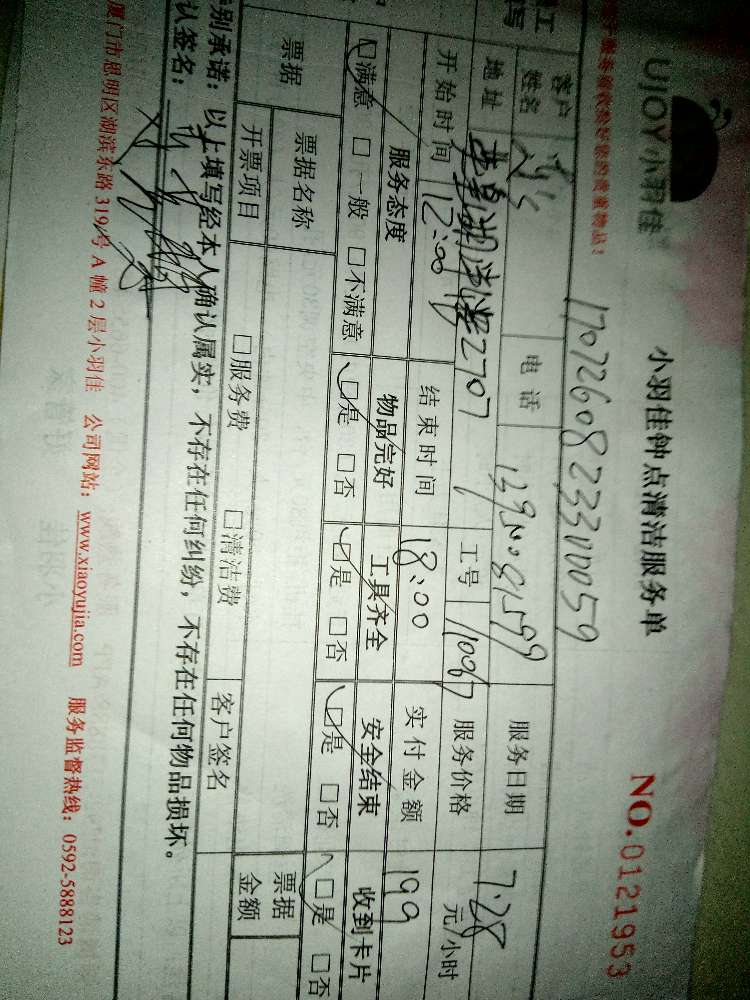 UJOY 小羽佳
小羽佳钟点清洁服务单
NO.0121953
客户姓名 电话 服务日期 7.28
地址 2707 工号 服务价格 元/小时
开始时间 12:00 结束时间 18:00 实付金额 199
服务态度 物品完好 工具齐全 安全结束 收到卡片
□满意 □一般 □不满意 □是 □否 □是 □否 □是 □否 □是 □否
票据 票据名称 □服务费 □清洁费 票据金额
开票项目 客户签名
别承诺：以上填写经本人确认属实，不存在任何纠纷，不存在任何物品损坏。
认签名：
厦门市思明区湖滨东路 319 号 A 幢 2 层小羽佳 公司网站：www.xiaoyujia.com 服务监督热线：0592-5888123